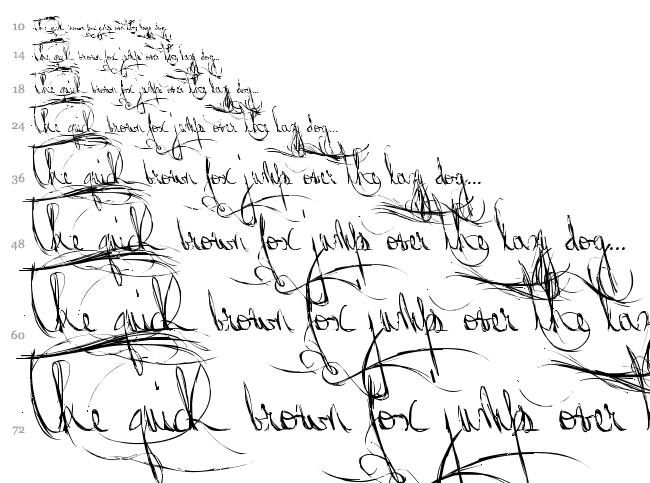 10 the quick brown fox jumps over the lazy dog...
14 the quick brown fox jumps over the lazy dog...
18 the quick brown fox jumps over the lazy dog...
24 the quick brown fox jumps over the lazy dog...
36 the quick brown fox jumps over the lazy dog...
48 the quick brown fox jumps over the lazy dog...
60 the quick brown fox jumps over the laz
72 the quick brown fox jumps over